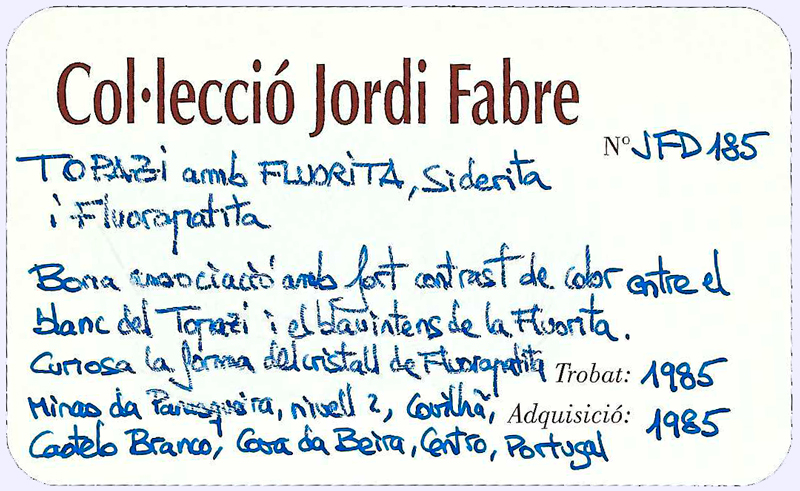 Col·lecció Jordi Fabre
Nº JFD185
TOPAZi amb FLUORiTA, Siderita
i Fluorapatita
Bona associació amb fort contrast de color entre el
blanc del Topazi i el blau intens de la Fluorita.
Curiosa la forma del cristall de Fluorapatita
Trobat: 1985
Minas da Panasqueira, nivell 2, Covilhã,
Adquisició: 1985
Castelo Branco, Cova da Beira, Centro, Portugal